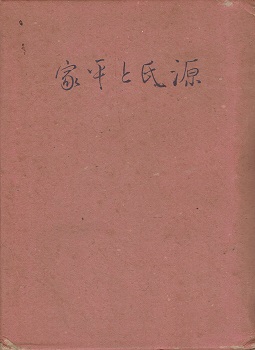 源氏と平家